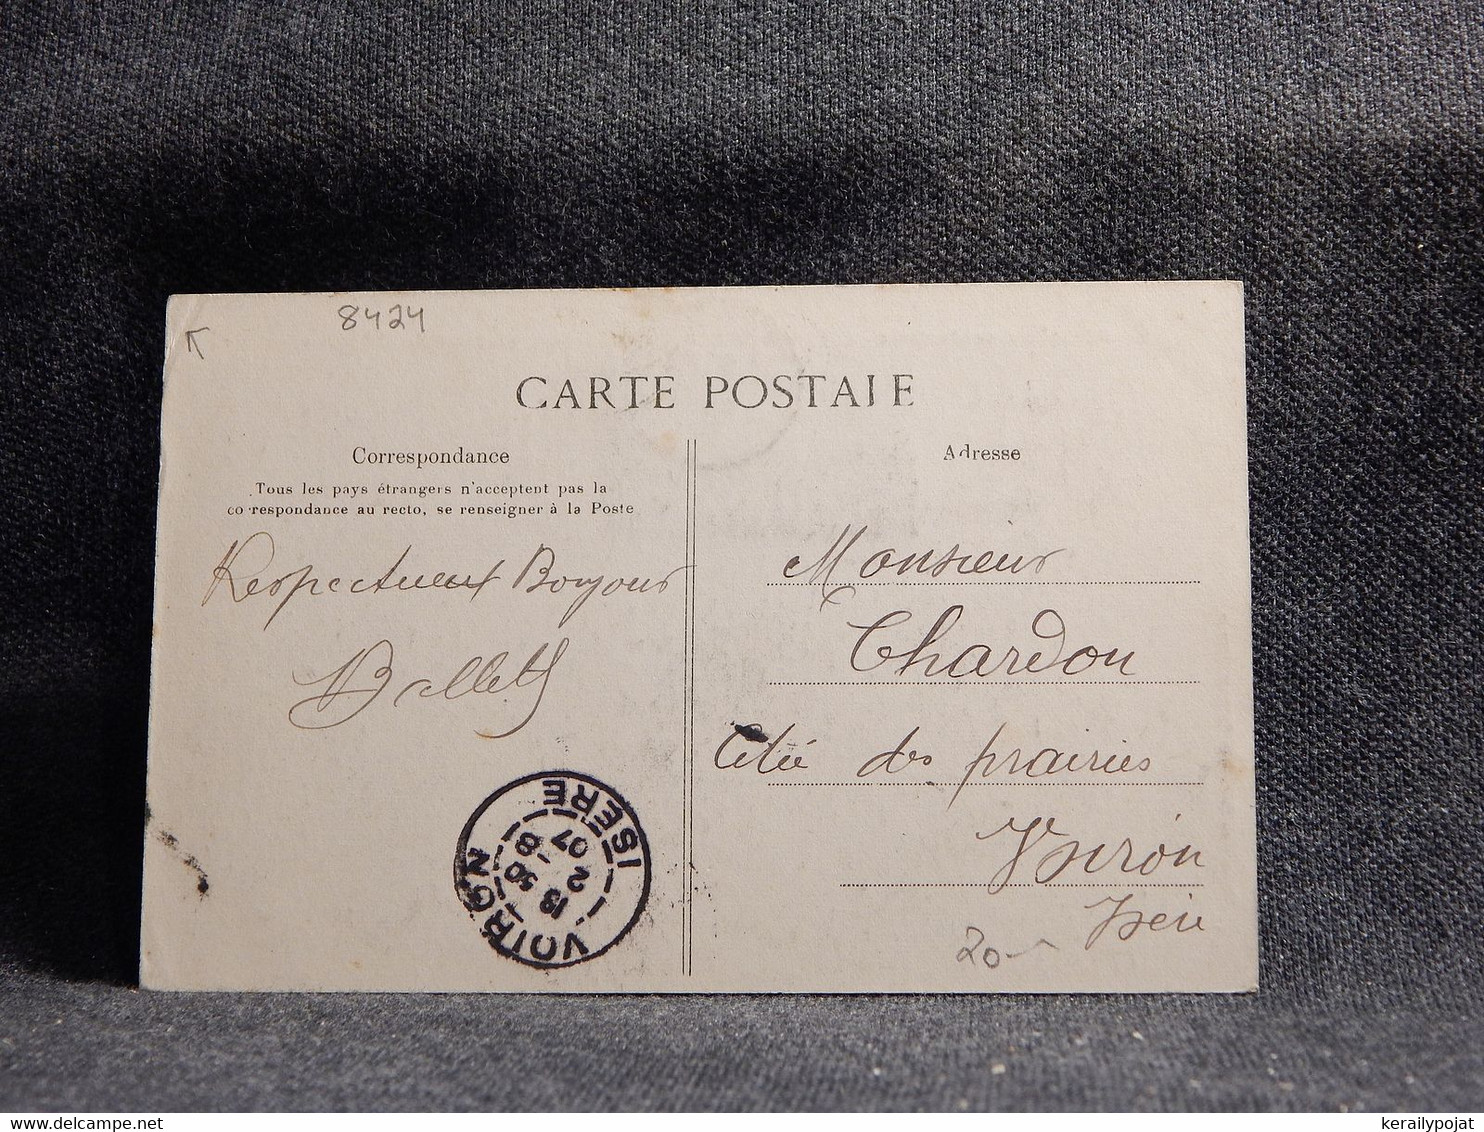 8424
CARTE POSTALE
Correspondance
Tous les pays étrangers n'acceptent pas la
correspondance au recto, se renseigner à la Poste
Respectueux Bonjour
Adresse
Monsieur
Chardon
Cité des prairies
Voiron
Isère
20-
VOIRON
ISERE
13 30
2 -8
07
kerailypojat